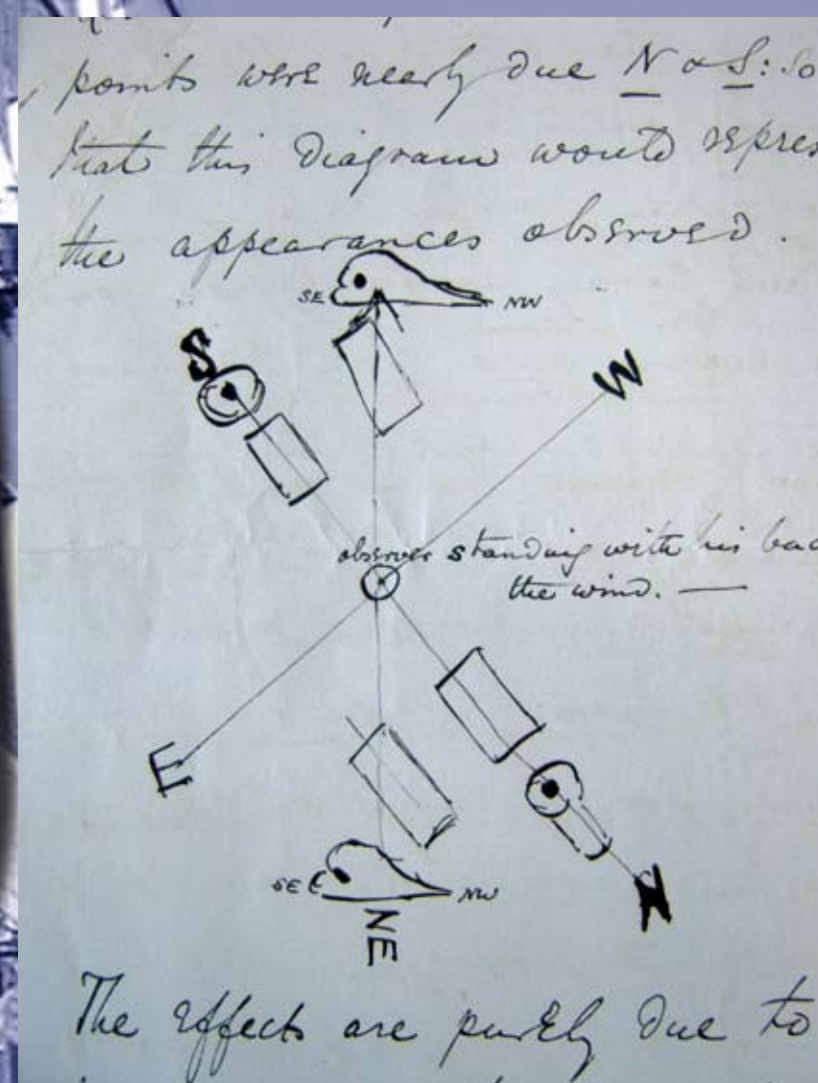 points were nearly due N & S: So
that this Diagram would repres
the appearances observed.
SE NW
S
W
observer standing with his bac
the wind. —
E
SE E NW
N
NE
The effects are purely due to